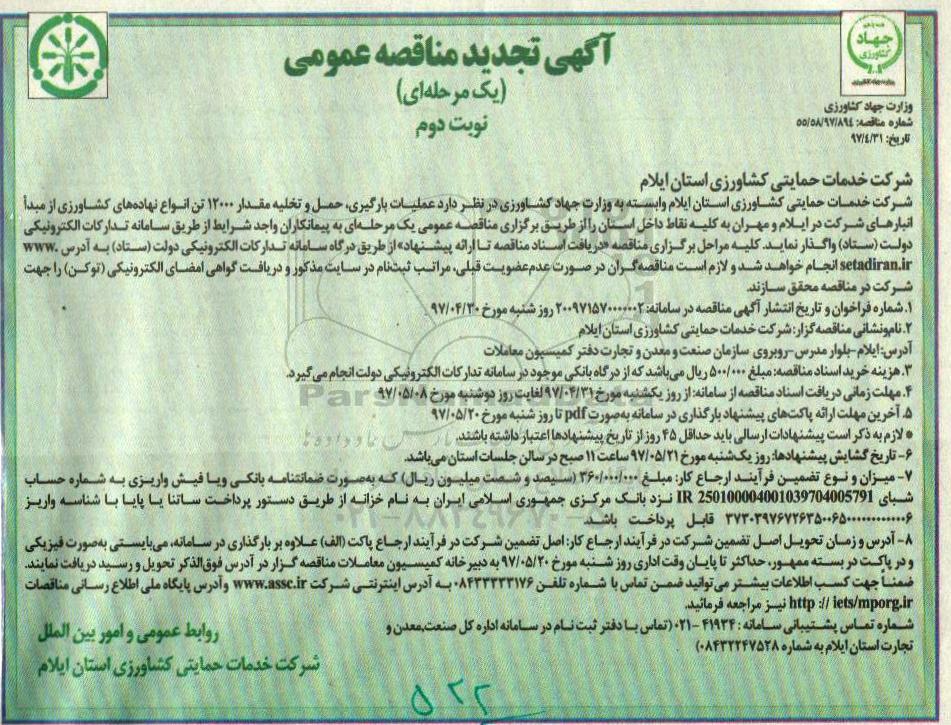 آگهی تجدید مناقصه عمومی
(یک مرحله‌ای)
نوبت دوم
جهاد
کشاورزی
وزارت جهاد کشاورزی
شماره مناقصه: ۵۵/۵۸/۹۷/۸۹۴
تاریخ: ۹۷/۴/۳۱
شرکت خدمات حمایتی کشاورزی استان ایلام
شرکت خدمات حمایتی کشاورزی استان ایلام وابسته به وزارت جهاد کشاورزی در نظر دارد عملیات بارگیری، حمل و تخلیه مقدار ۱۲۰۰۰ تن انواع نهاده‌های کشاورزی از مبدأ
انبارهای شرکت در ایلام و مهران به کلیه نقاط داخل استان را از طریق برگزاری مناقصه عمومی یک مرحله‌ای به پیمانکاران واجد شرایط از طریق سامانه تدارکات الکترونیکی
دولت (ستاد) واگذار نماید. کلیه مراحل برگزاری مناقصه «دریافت اسناد مناقصه تا ارائه پیشنهاد» از طریق درگاه سامانه تدارکات الکترونیکی دولت (ستاد) به آدرس www.
setadiran.ir انجام خواهد شد و لازم است مناقصه‌گران در صورت عدم‌عضویت قبلی، مراتب ثبت‌نام در سایت مذکور و دریافت گواهی امضای الکترونیکی (توکن) را جهت
شرکت در مناقصه محقق سازند.
۱. شماره فراخوان و تاریخ انتشار آگهی مناقصه در سامانه: ۲۰۰۹۷۱۵۷۰۰۰۰۰۰۲ روز شنبه مورخ ۹۷/۰۴/۳۰.
۲. نام‌ونشانی مناقصه‌گزار: شرکت خدمات حمایتی کشاورزی استان ایلام
آدرس: ایلام-بلوار مدرس-روبروی سازمان صنعت و معدن و تجارت دفتر کمیسیون معاملات
۳. هزینه خرید اسناد مناقصه: مبلغ ۵۰۰/۰۰۰ ریال می‌باشد که از درگاه بانکی موجود در سامانه تدارکات الکترونیکی دولت انجام می‌گیرد.
۴. مهلت زمانی دریافت اسناد مناقصه از سامانه: از روز یکشنبه مورخ ۹۷/۰۴/۳۱ لغایت روز دوشنبه مورخ ۹۷/۰۵/۰۸
۵. آخرین مهلت ارائه پاکت‌های پیشنهاد بارگذاری در سامانه به‌صورت pdf تا روز شنبه مورخ ۹۷/۰۵/۲۰
* لازم به ذکر است پیشنهادات ارسالی باید حداقل ۴۵ روز از تاریخ پیشنهادها اعتبار داشته باشند.
۶- تاریخ گشایش پیشنهادها: روز یک‌شنبه مورخ ۹۷/۰۵/۲۱ ساعت ۱۱ صبح در سالن جلسات استان می‌باشد.
۷- میزان و نوع تضمین فرآیند ارجاع کار: مبلغ ۳۶۰/۰۰۰/۰۰۰ (سیصد و شصت میلیون ریال) که به‌صورت ضمانتنامه بانکی ویا فیش واریزی به شماره حساب
شبای IR 250100004001039704005791 نزد بانک مرکزی جمهوری اسلامی ایران به نام خزانه از طریق دستور پرداخت ساتنا یا پایا با شناسه واریز
قابل پرداخت باشد.
۸- آدرس و زمان تحویل اصل تضمین شرکت در فرآیند ارجاع کار: اصل تضمین شرکت در فرآیند ارجاع پاکت (الف) علاوه بر بارگذاری در سامانه، می‌بایستی به‌صورت فیزیکی
و در پاکت در بسته ممهور، حداکثر تا پایان وقت اداری روز شنبه مورخ ۹۷/۰۵/۲۰ به دبیرخانه کمیسیون معاملات مناقصه گزار در آدرس فوق‌الذکر تحویل و رسید دریافت نمایند.
ضمنا جهت کسب اطلاعات بیشتر می‌توانید ضمن تماس با شماره تلفن ۰۸۴۳۳۳۳۳۱۷۶ به آدرس اینترنتی شرکت www.assc.ir و آدرس پایگاه ملی اطلاع رسانی مناقصات
http :// iets/mporg.ir نیز مراجعه فرمائید.
شماره تماس پشتیبانی سامانه : ۴۱۹۳۴-۰۲۱ (تماس با دفتر ثبت نام در سامانه اداره کل صنعت،معدن و
تجارت استان ایلام به شماره ۰۸۴۳۲۲۴۷۵۲۸)
روابط عمومی و امور بین الملل
شرکت خدمات حمایتی کشاورزی استان ایلام
۵۲۲